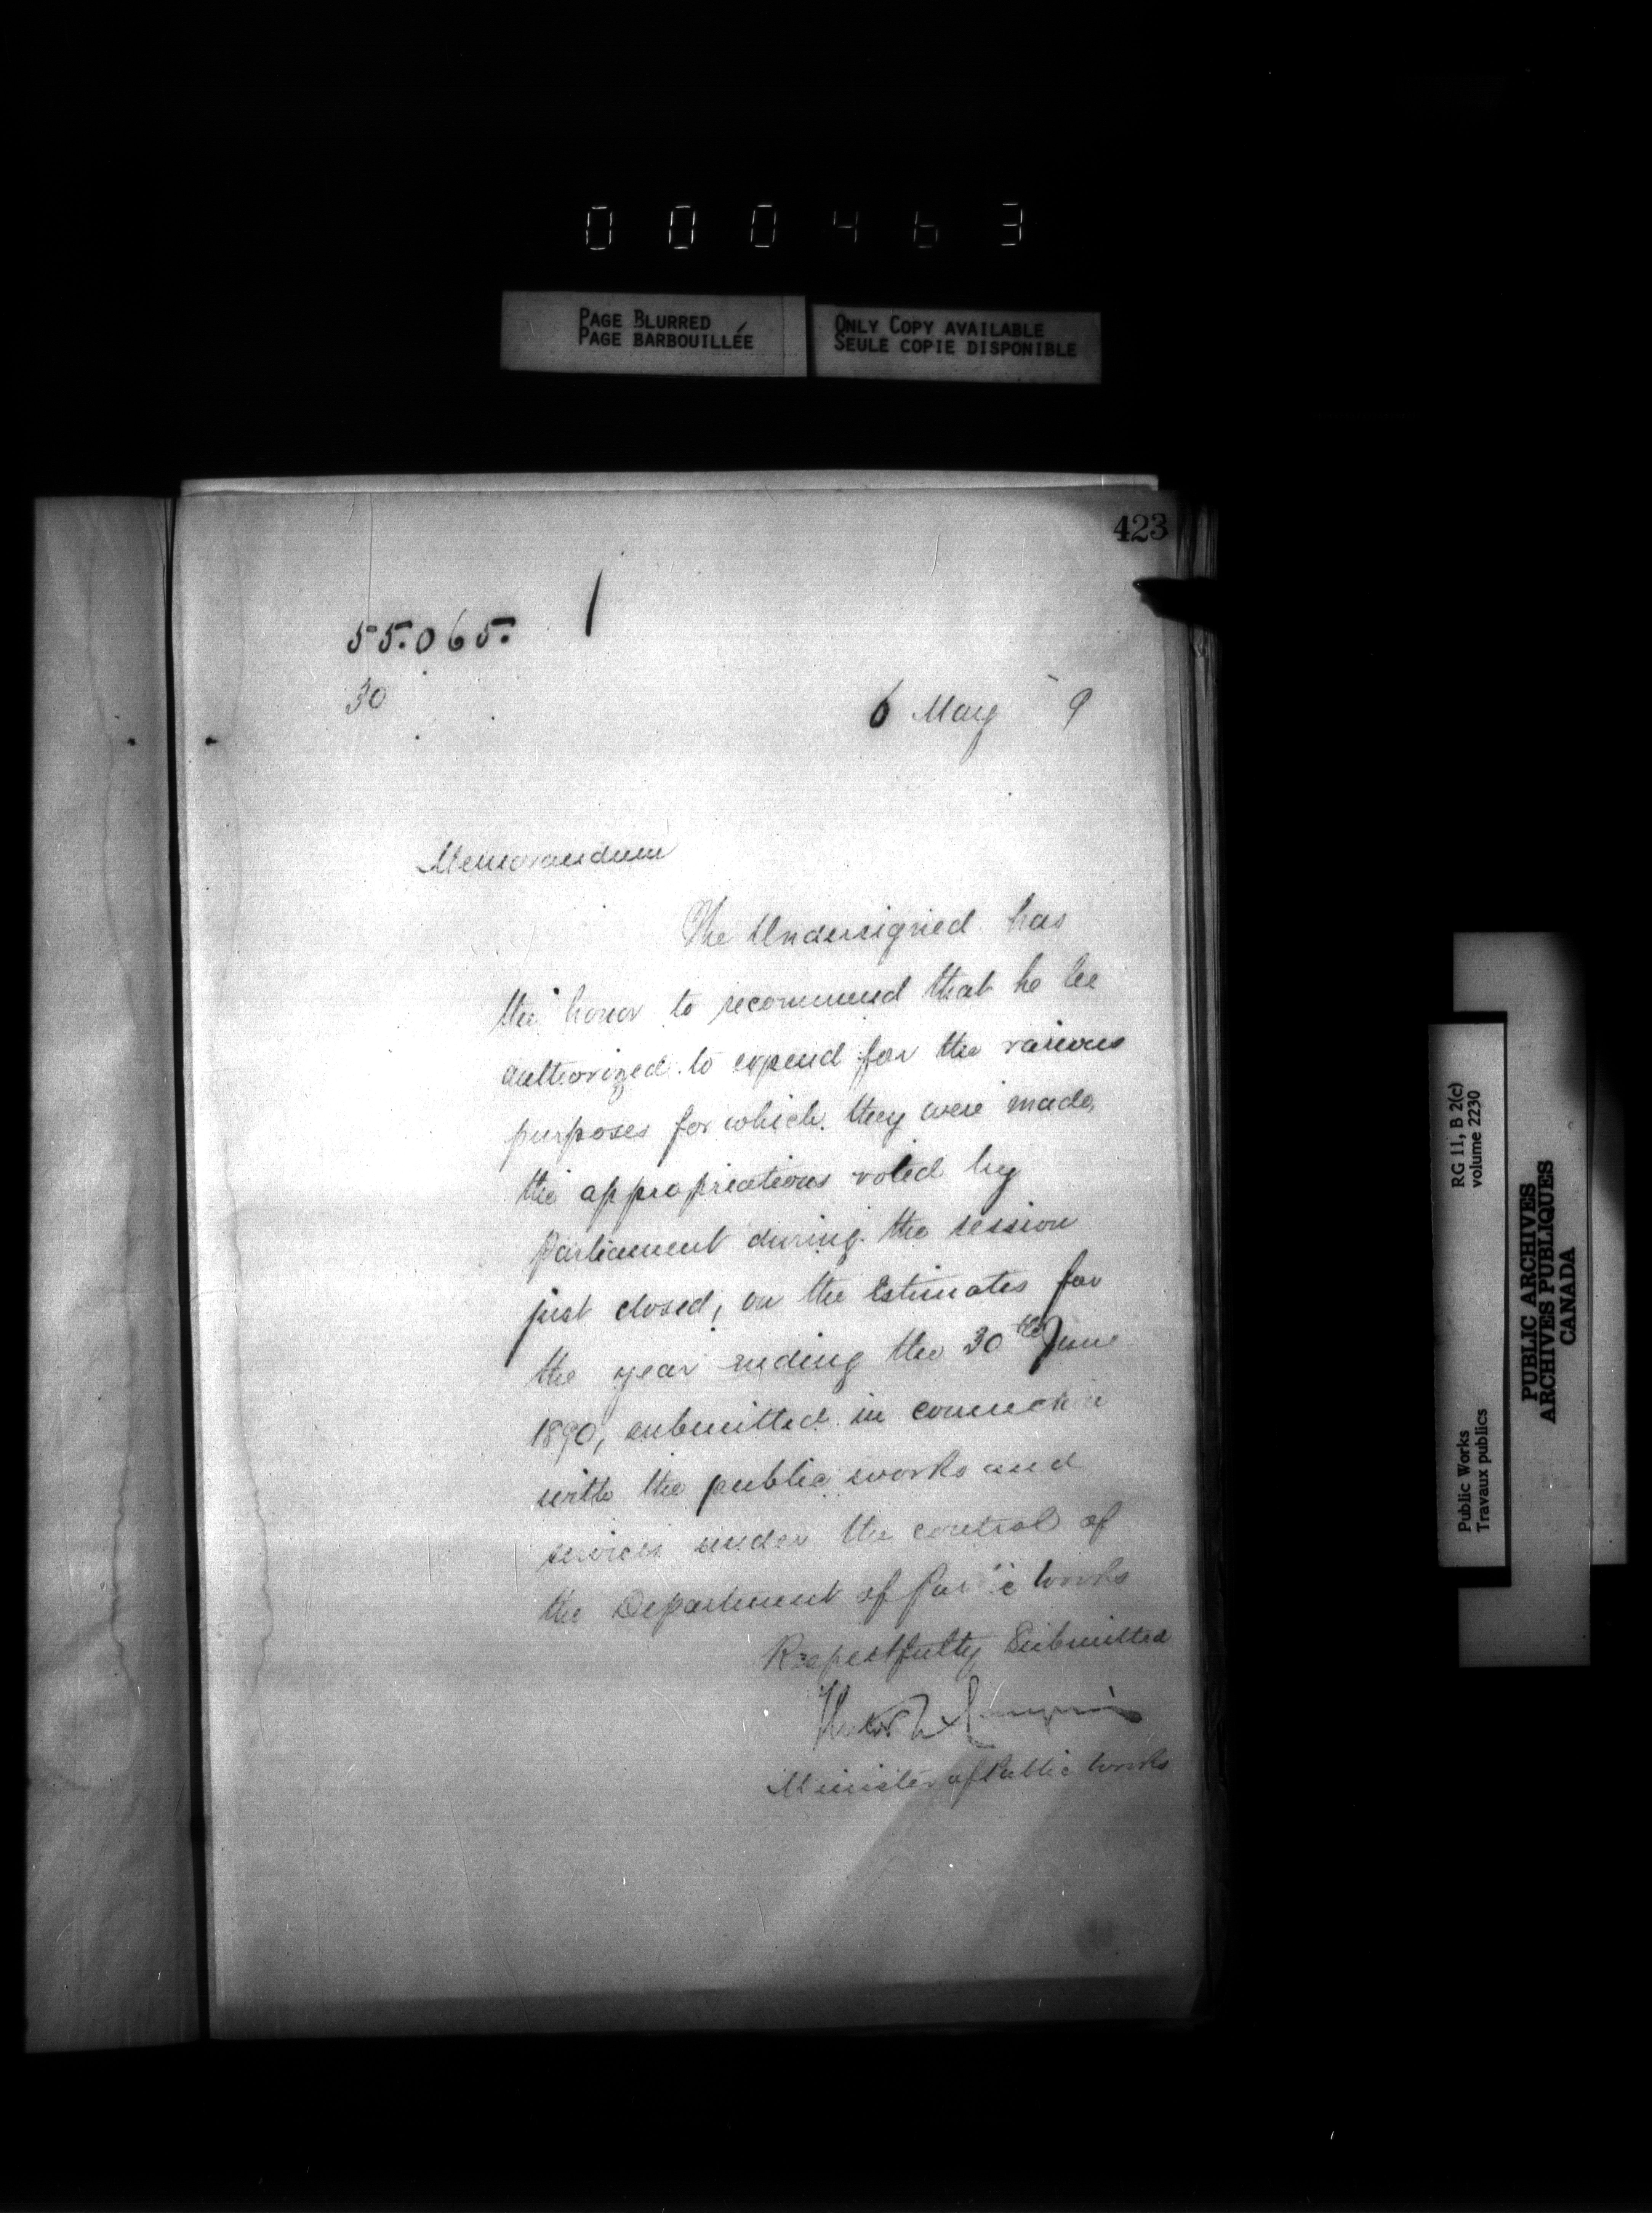 000463
PAGE BLURRED
PAGE BARBOUILLÉE
ONLY COPY AVAILABLE
SEULE COPIE DISPONIBLE
423
55.065.
30
6 May 9
Memorandum
The Undersigned has
the honor to recommend that he be
authorized to expend for the various
purposes for which they were made,
the appropriations voted by
Parliament during the session
just closed, on the Estimates for
the year ending the 30th June
1890, submitted in connection
with the public works and
services under the control of
the Department of Public Works
Respectfully Submitted
Hector L Langevin
Minister of Public Works
RG 11, B 2(c)
volume 2230
Public Works
Travaux publics
PUBLIC ARCHIVES
ARCHIVES PUBLIQUES
CANADA